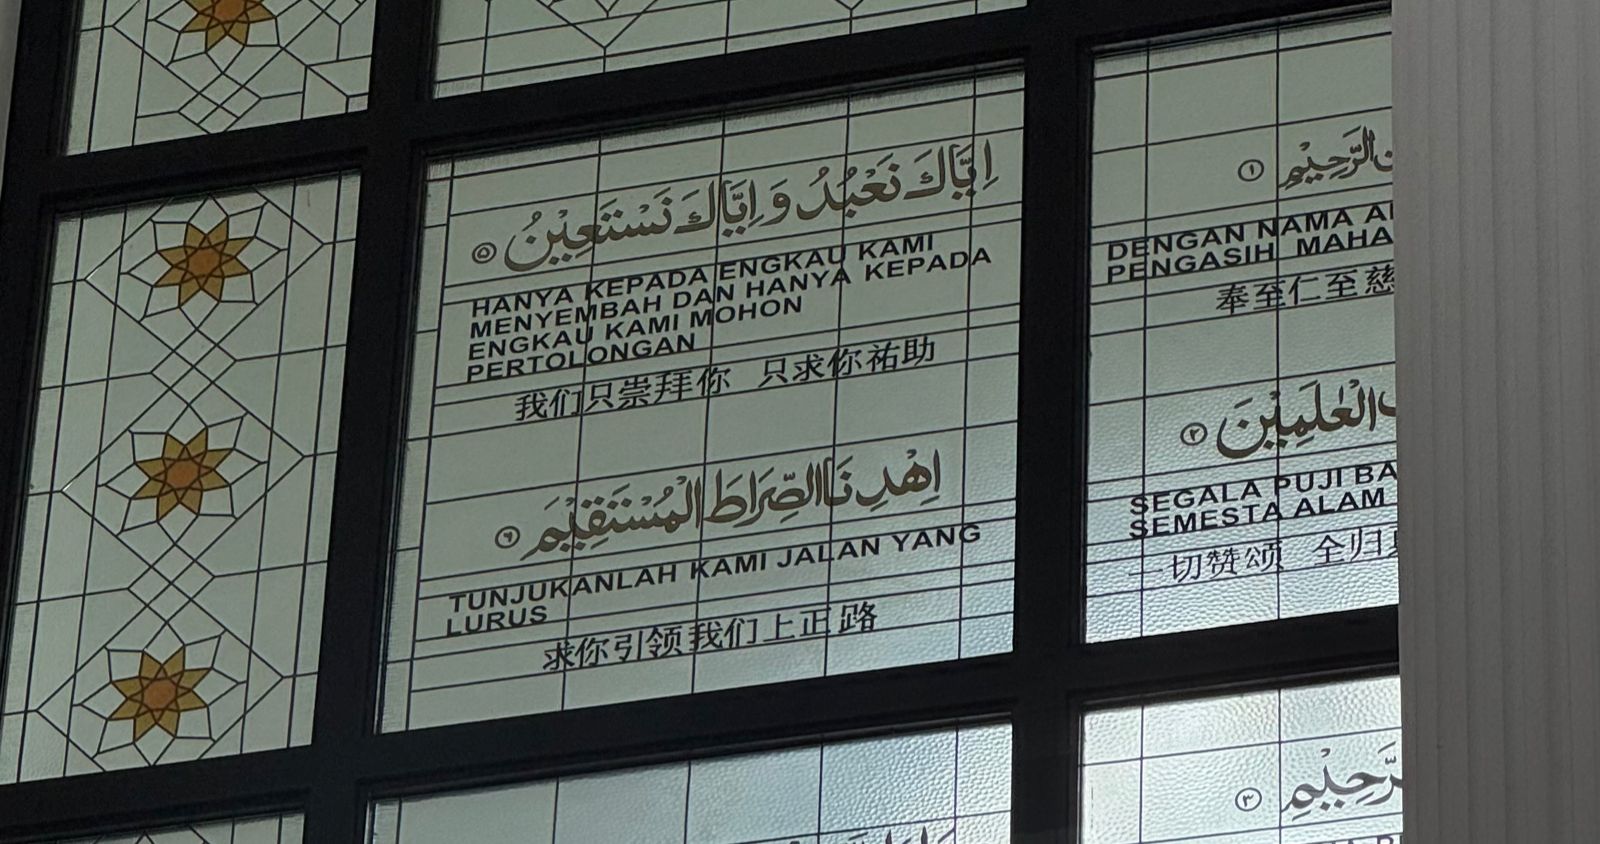 اِيَّاكَ نَعْبُدُ وَ اِيَّاكَ نَسْتَعِيْنُ ۵
HANYA KEPADA ENGKAU KAMI
MENYEMBAH DAN HANYA KEPADA
ENGKAU KAMI MOHON
PERTOLONGAN
我们只崇拜你 只求你祐助
اِهْدِ نَا الصِّرَاطَ الْمُسْتَقِيْمَ ۶
TUNJUKANLAH KAMI JALAN YANG
LURUS
求你引领我们上正路
الرَّحِيْمِ ۱
DENGAN NAMA
PENGASIH MAHA
奉至仁至慈
الْعٰلَمِيْنَ ۲
SEGALA PUJI
SEMESTA ALAM
一切赞颂 全归
۳